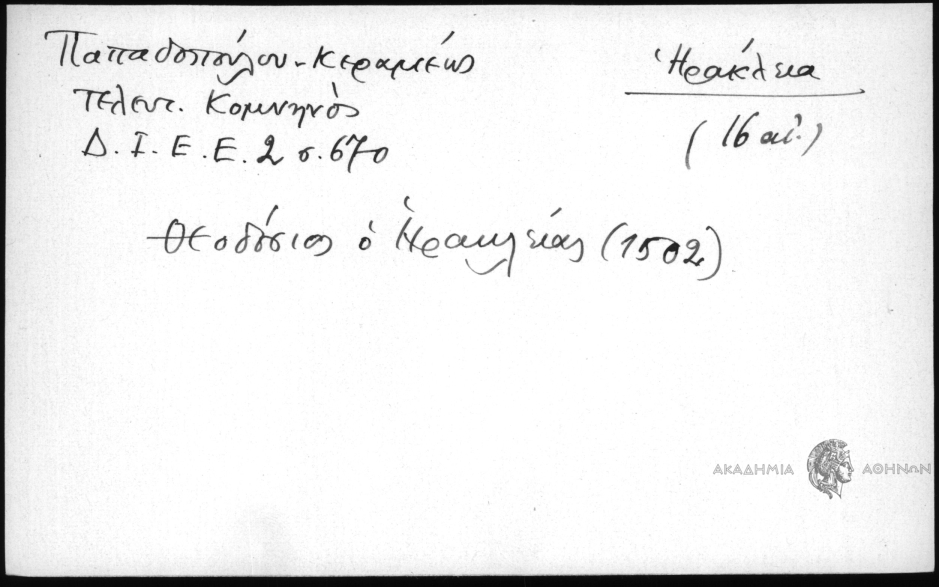 Παπαδοπούλου-Κεραμέως
τελευτ. Κομνηνὸς
Δ. Ι. Ε. Ε. 2 σ. 670
Ἡράκλεια
(16 αἰ.)
Θεοδόσιος ὁ Ἡρακλείας (1502)
ΑΚΑΔΗΜΙΑ ΑΘΗΝΩΝ